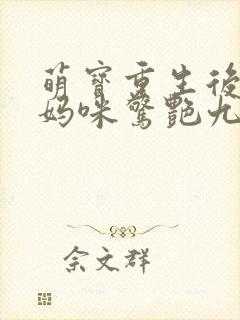 萌寶重生後
媽咪驚艷九
佘文群